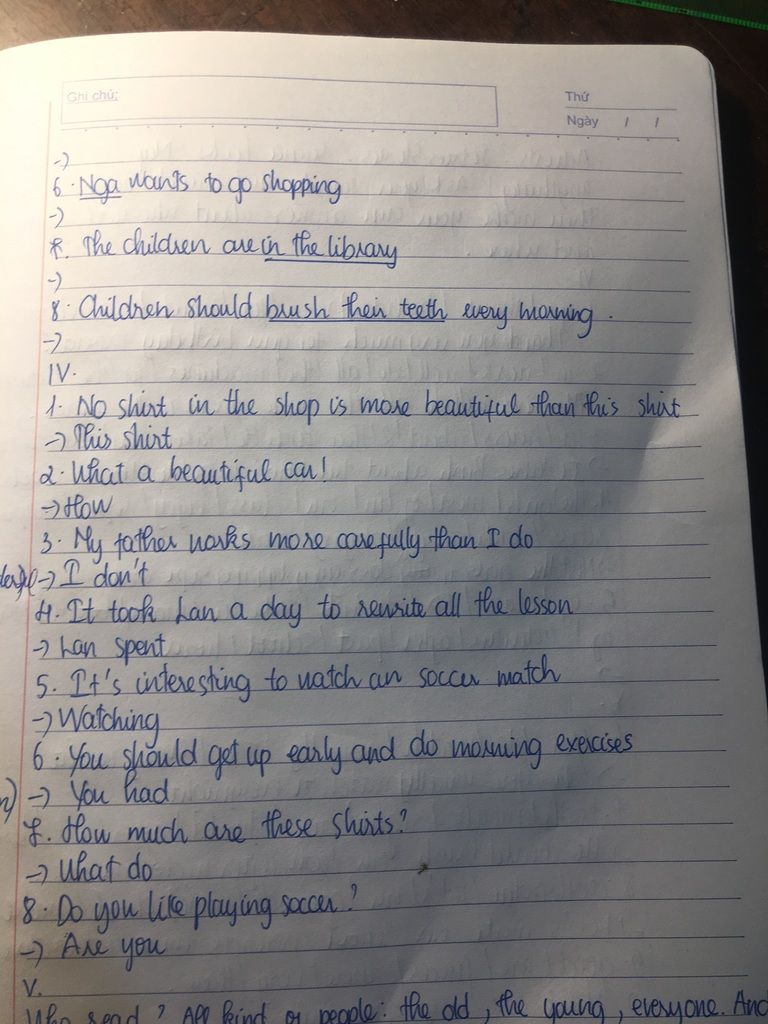 Ghi chú:
Thứ
Ngày / /
->
6. Nga wants to go shopping
->
7. The children are in the library
->
8. Children should brush their teeth every morning.
->
IV.
1. No shirt in the shop is more beautiful than this shirt
-> This shirt
2. What a beautiful car!
-> How
3. My father works more carefully than I do
-> I don't
4. It took Lan a day to rewrite all the lesson
-> Lan spent
5. It's interesting to watch an soccer match
-> Watching
6. You should get up early and do morning exercises
-> You had
7. How much are these shirts?
-> What do
8. Do you like playing soccer?
-> Are you
V.
Who read? All kind of people: the old, the young, everyone. And